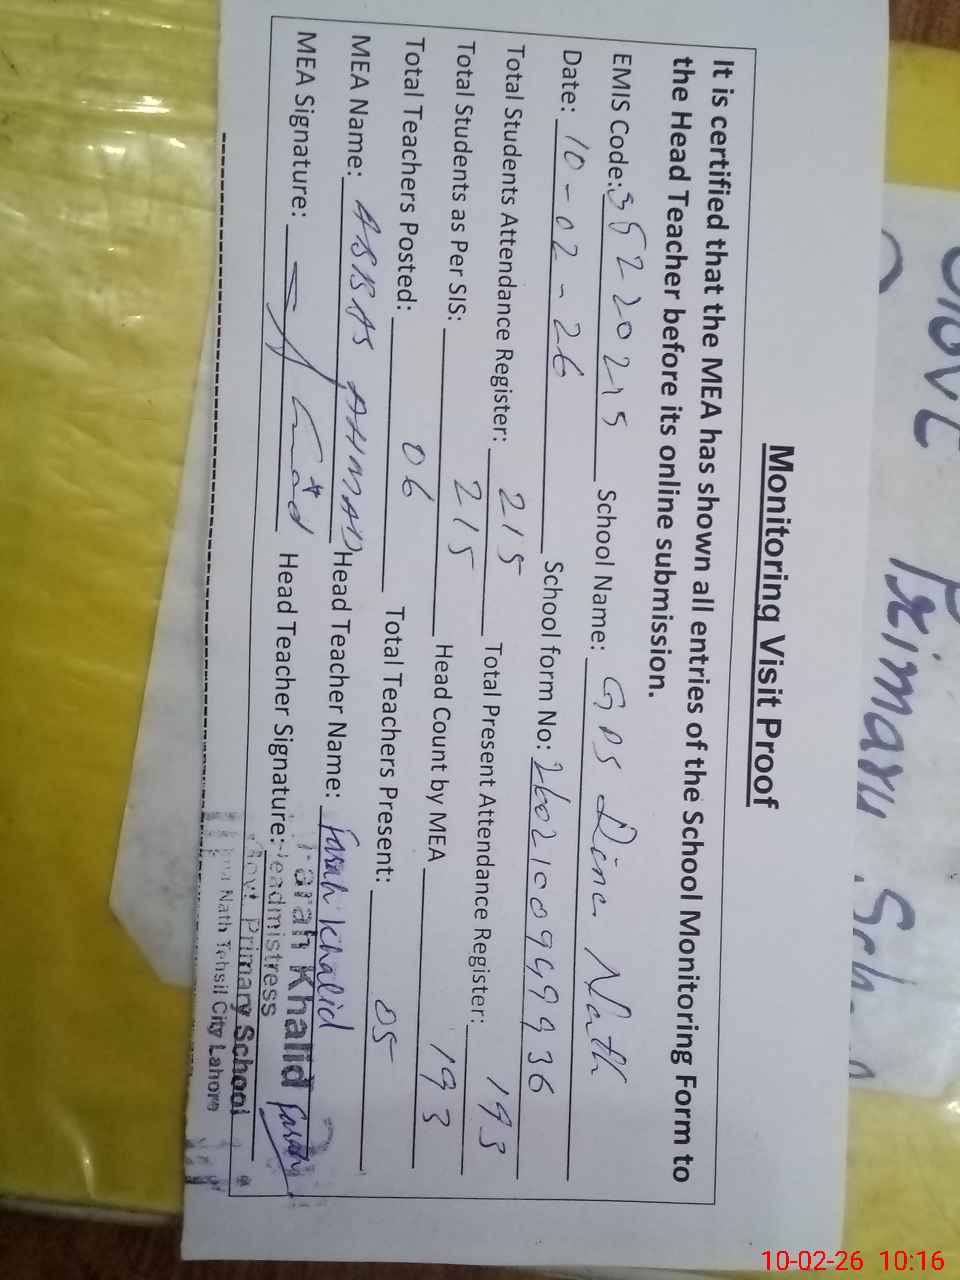 Monitoring Visit Proof
It is certified that the MEA has shown all entries of the School Monitoring Form to
the Head Teacher before its online submission.
EMIS Code: 35220215 School Name: GPS Dina Nath
Date: 10-02-26 School form No: 2602100999936
Total Students Attendance Register: 215 Total Present Attendance Register: 193
Total Students as Per SIS: 215 Head Count by MEA 193
Total Teachers Posted: 06 Total Teachers Present: 05
MEA Name: ABBAS AHMAD Head Teacher Name: Farah Khalid
MEA Signature: Head Teacher Signature: Farah
Farah Khalid
Headmistress
Govt. Primary School
Nath Tehsil City Lahore
Govt Primary
10-02-26 10:16